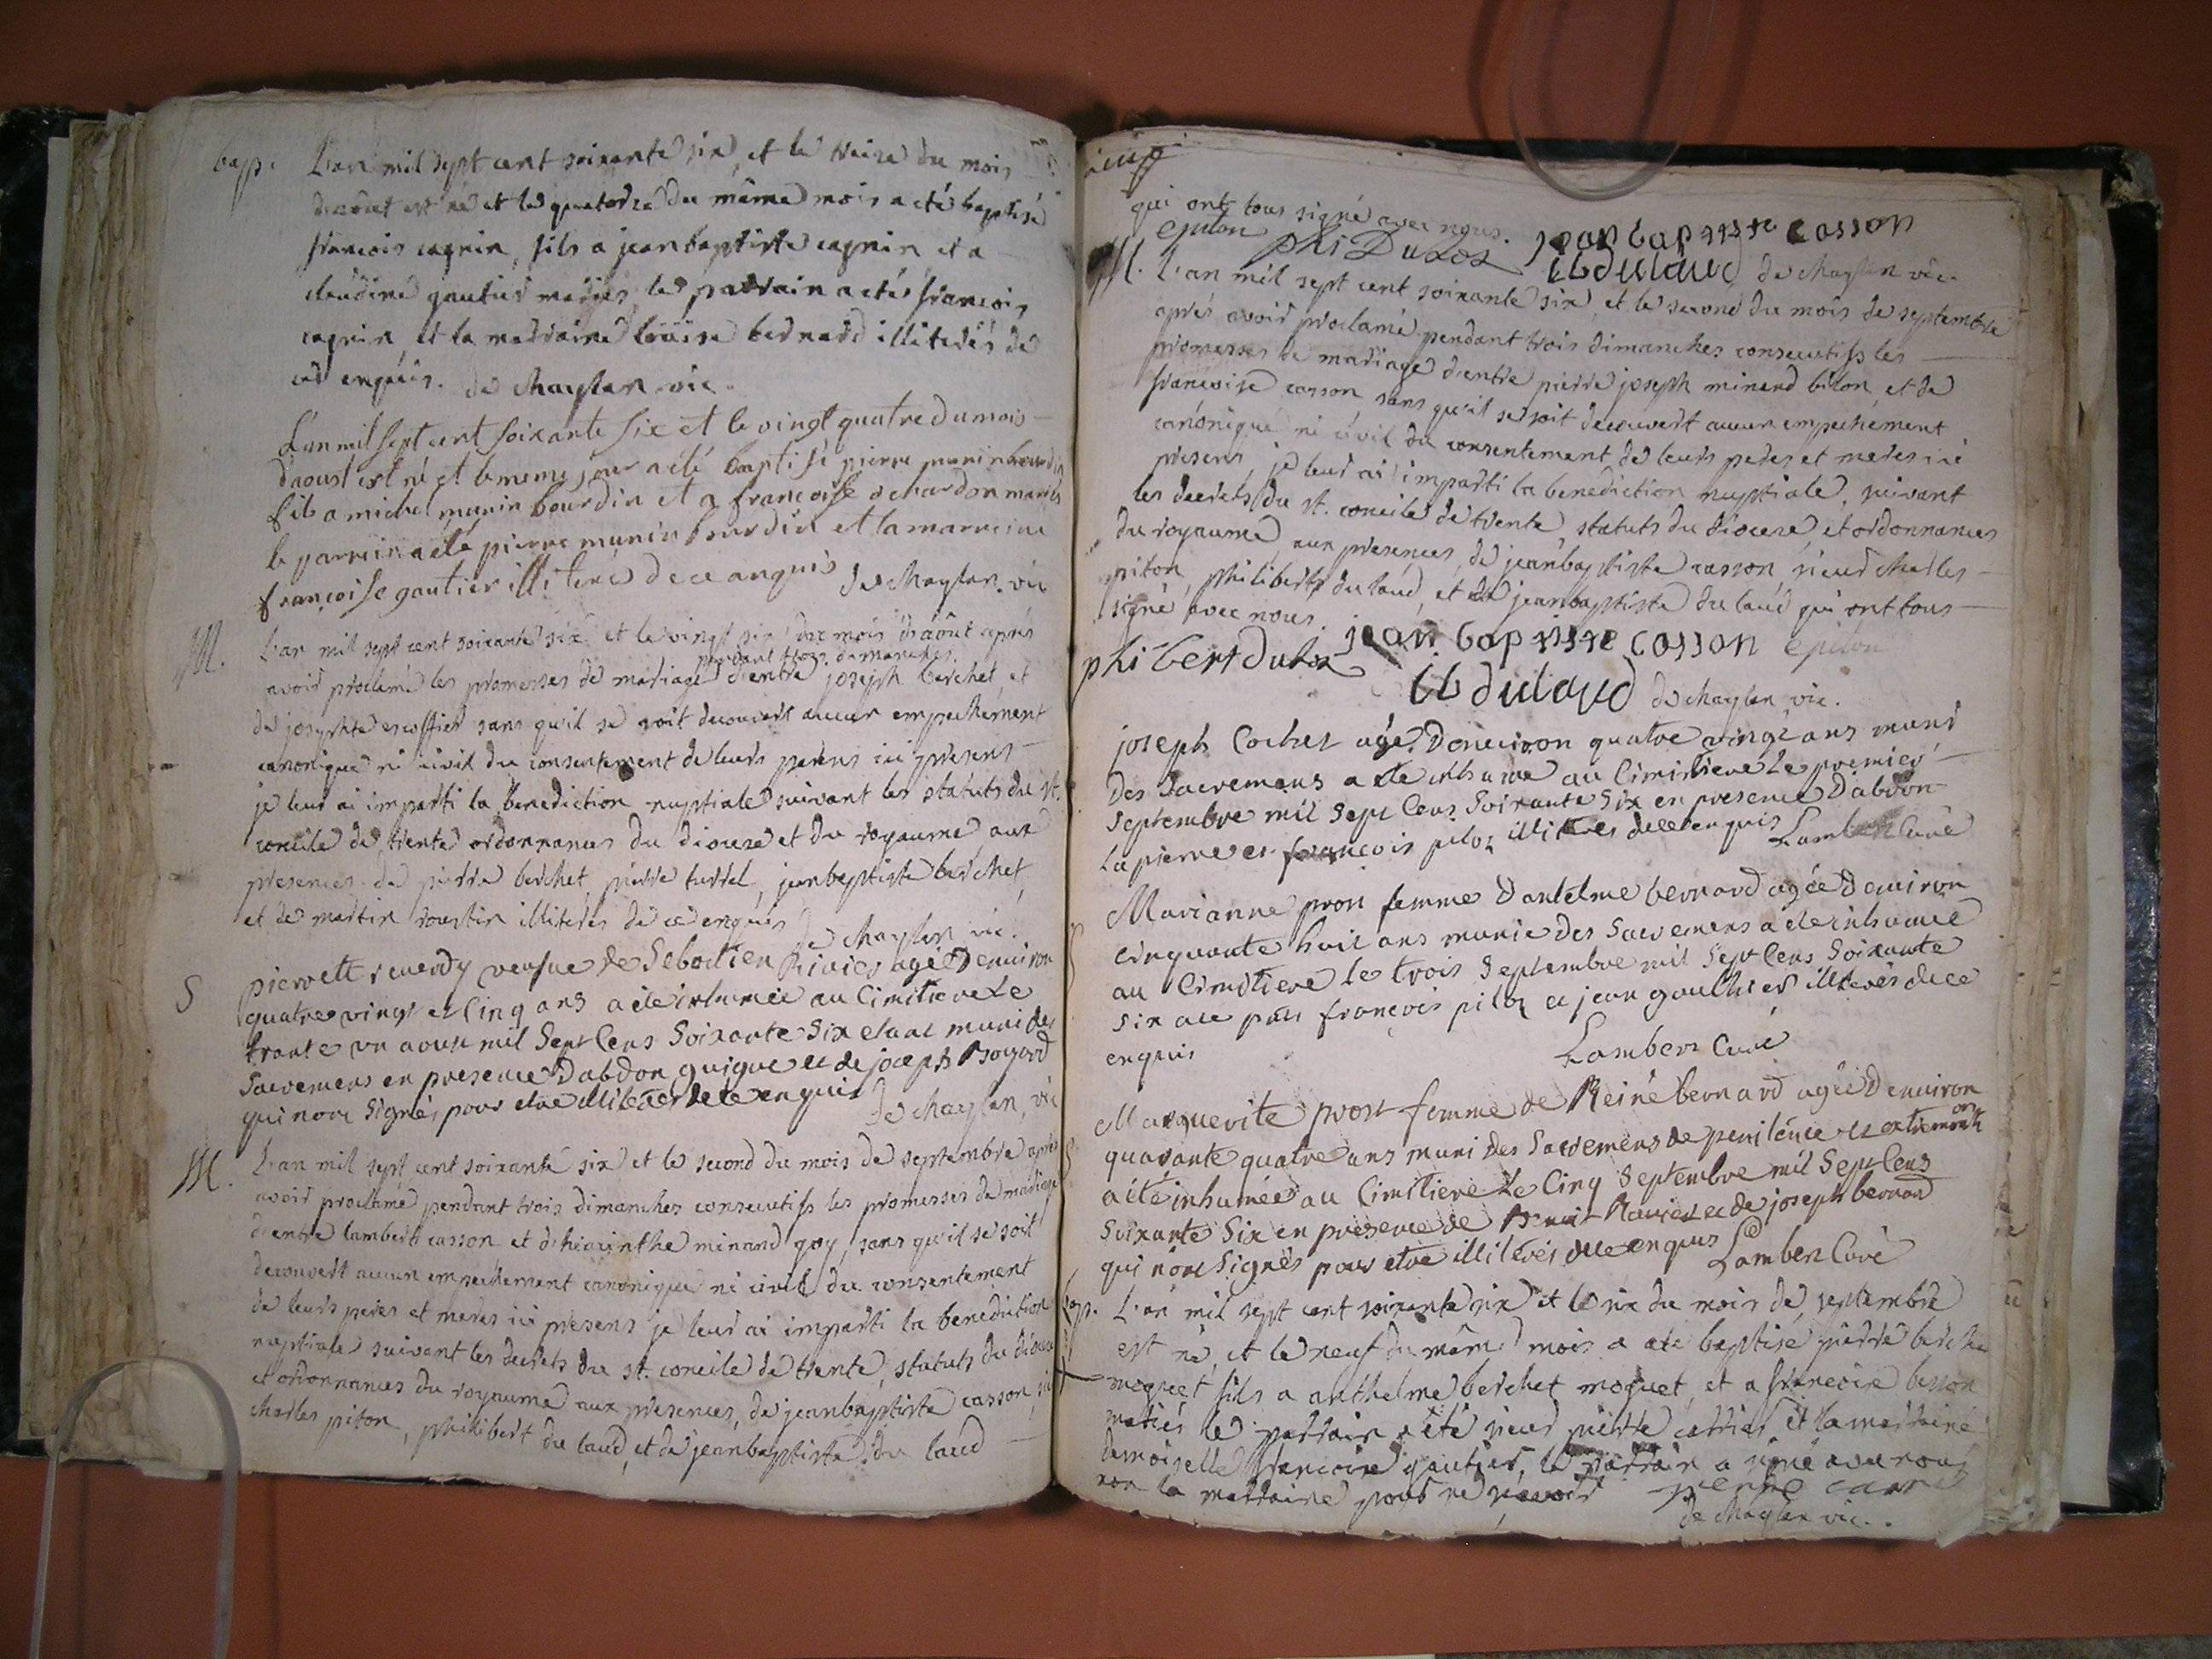 bap. L'an mil sept cent soixante six, et le treize du mois
d'aôut est né et le quatorze du même mois a eté baptisé
francois cagnin, fils a jean baptiste cagnin et a
claudine gautier mariés, le parrain a eté francois
cagnin, et la marraine loüise bernard illiterés de
ce enquis. de Chaylan vic.
L'an mil sept cent soixante six et le vingt quatre du mois
daoust est né et le meme jour a eté baptisé pierre munin bourdin
fils a michel munin bourdin et a francoise chardon mariés
le parrain a eté pierre munin bourdin et la marreine
françoise gautier illiteré de ce anquis de Chaylan. vic
M. L'an mil sept cent soixante six et le vingt six du mois d'aôut aprés
pendant trois dimanches
avoir proclamé les promesses de mariage d'entre joseph berchet, et
de josephte escoffier sans qu'il se soit decouvert aucun empechement
canonique ni civil du consentement de leurs parens ici presens
je leur ai imparti la benediction nuptiale suivant les statuts du st.
concile de trente ordonnances du diocese et du royaume, aux
presences de pierre berchet, pierre turrel, jean baptiste berchet
et de martin roustin illiterés de ce enquis de Chaylan vic.
S pierrette reverdy veufue de Sebastien Rivier agée D'environ
quatre vingt et Cinq ans a eté inhumée au Cimitiere Le
trante un aoust mil Sept Cens Soixante Six etant muni des
Sacremens en presence D'abdon guigue et de joseph Bogard
qui n'ont Signés pour etre illiterés de ce enquis de Chaylan, vic
M. L'an mil sept cent soixante six et le second du mois de septembre aprés
avoir proclamé pendant trois dimanches consecutifs les promesses de mariage
d'entre lambert casson et d'hiacinthe minand goy, sans qu'il se soit
decouvert aucun empechement canonique ni civil du consentement
de leurs peres et meres ici presens je leur ai imparti la benediction
nuptiale suivant les decrets du st. concile de trente, statuts du diocese
et ordonnances du royaume aux presences, de jeanbaptiste casson,
charles piton, philibert du laud, et de jeanbaptiste du laud
qui ont tous signé avec nous. jean baptiste casson
cpiton phi Dulod JBdulaud de Chaylan vic.
M. L'an mil sept cent soixante six, et le second du mois de septembre
aprés avoir proclamé pendant trois dimanches consecutifs les
promesses de mariage d'entre pierre joseph minand bilon, et de
francoise casson sans qu'il se soit decouvert aucun empechement
canonique ni civil du consentement de leurs peres et meres ici
presens, je leur ai imparti la benediction nuptiale, suivant
les decrets du st. concile de trente, statuts du diocese, et ordonnances
du royaume, aux presences, de jeanbaptiste casson, sieur charles
piton, philibert du laud, et de jeanbaptiste du laud qui ont tous
signé avec nous. jean baptisste casson cpiton
philibert dulod JB dulaud de Chaylan, vic.
joseph Cochet agé D'environ quatre vingt ans muni
Des Sacremens a eté inhumé au Cimitiere Le premier
Septembre mil Sept Cens Soixante Six en presence D'abdon
Lapierre et francois piloz illiterés de ce enquis Lambert Curé
Marianne pron femme D'antelme bernard agée D'environ
cinquante huit ans munie des Sacremens a eté inhumée
au Cimitiere Le trois Septembre mil Sept Cens Soixante
six ace pnts françois piloz et jean gaulthier illiterés de ce
enquis Lambert Curé
Marguerite prost femme de Reiné bernard agée D'environ
quarante quatre ans muni des Sacremens de penitence et extremonction
a eté inhumée au Cimitiere Le Cinq Septembre mil Sept Cens
Soixante Six en presence de Benoit Ravier et de joseph bernard
qui n'ont Signés pour etre illiterés de ce enquis Lambert Curé
bap. L'an mil sept cent soixante six et le six du mois de septembre
est né, et le neuf du même mois a eté baptisé pierre berchet
moquet fils a anthelme berchet moquet, et a francoise besson
mariés le parrain a eté sieur pierre carrier et la marraine
demoiselle francoise gautier, le parrain a signé avec nous
non la marraine pour ne scavoir pierre carri
de Chaylan vic.